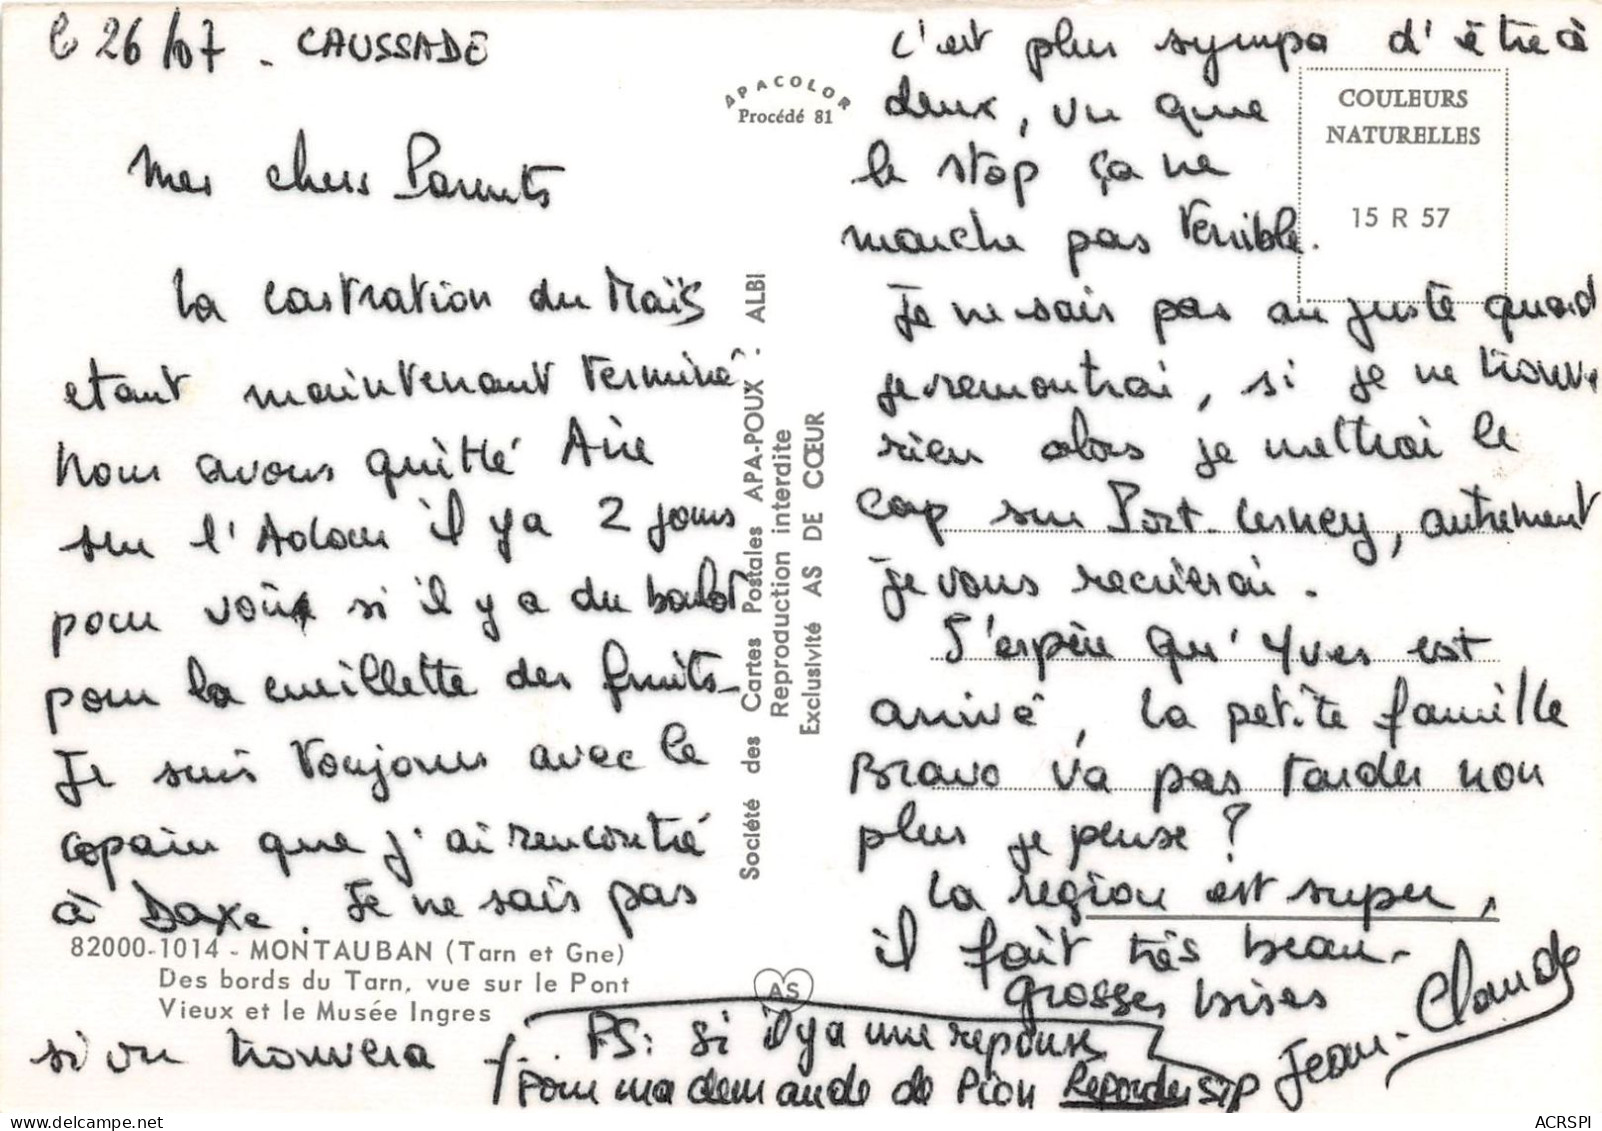 le 26/07 - CAUSSADE
Mes chers Parents
La castration du Maïs
etant maintenant terminé
nous avons quitté Aire
sur l'Adour il y a 2 jours
pour voir si il y a du boulot
pour la cueillette des fruits -
Je suis toujours avec le
copain que j'ai rencontré
à Daxe. Je ne sais pas
82000-1014 - MONTAUBAN (Tarn et Gne)
Des bords du Tarn, vue sur le Pont
Vieux et le Musée Ingres
si on trouvera
APACOLOR
Procédé 81
Société des Cartes Postales APA-POUX - ALBI
Reproduction interdite
Exclusivité AS DE CŒUR
AS
COULEURS
NATURELLES
15 R 57
c'est plus sympa d'être à
deux, vu que
le stop ça ne
marche pas terrible.
Je ne sais pas au juste quand
je remontrai, si je ne trouve
rien alors je mettrai le
cap sur Port-Lesney, autrement
je vous recrierai.
J'espère qu'Yves est
arrivé, la petite famille
Bravo va pas tarder non
plus je pense ?
La région est super,
il fait très beau -
Grosses bises
Jean-Claude
PS: Si il y a une reponse
Pour ma demande de Pion Reponder SIP
ACRSPI